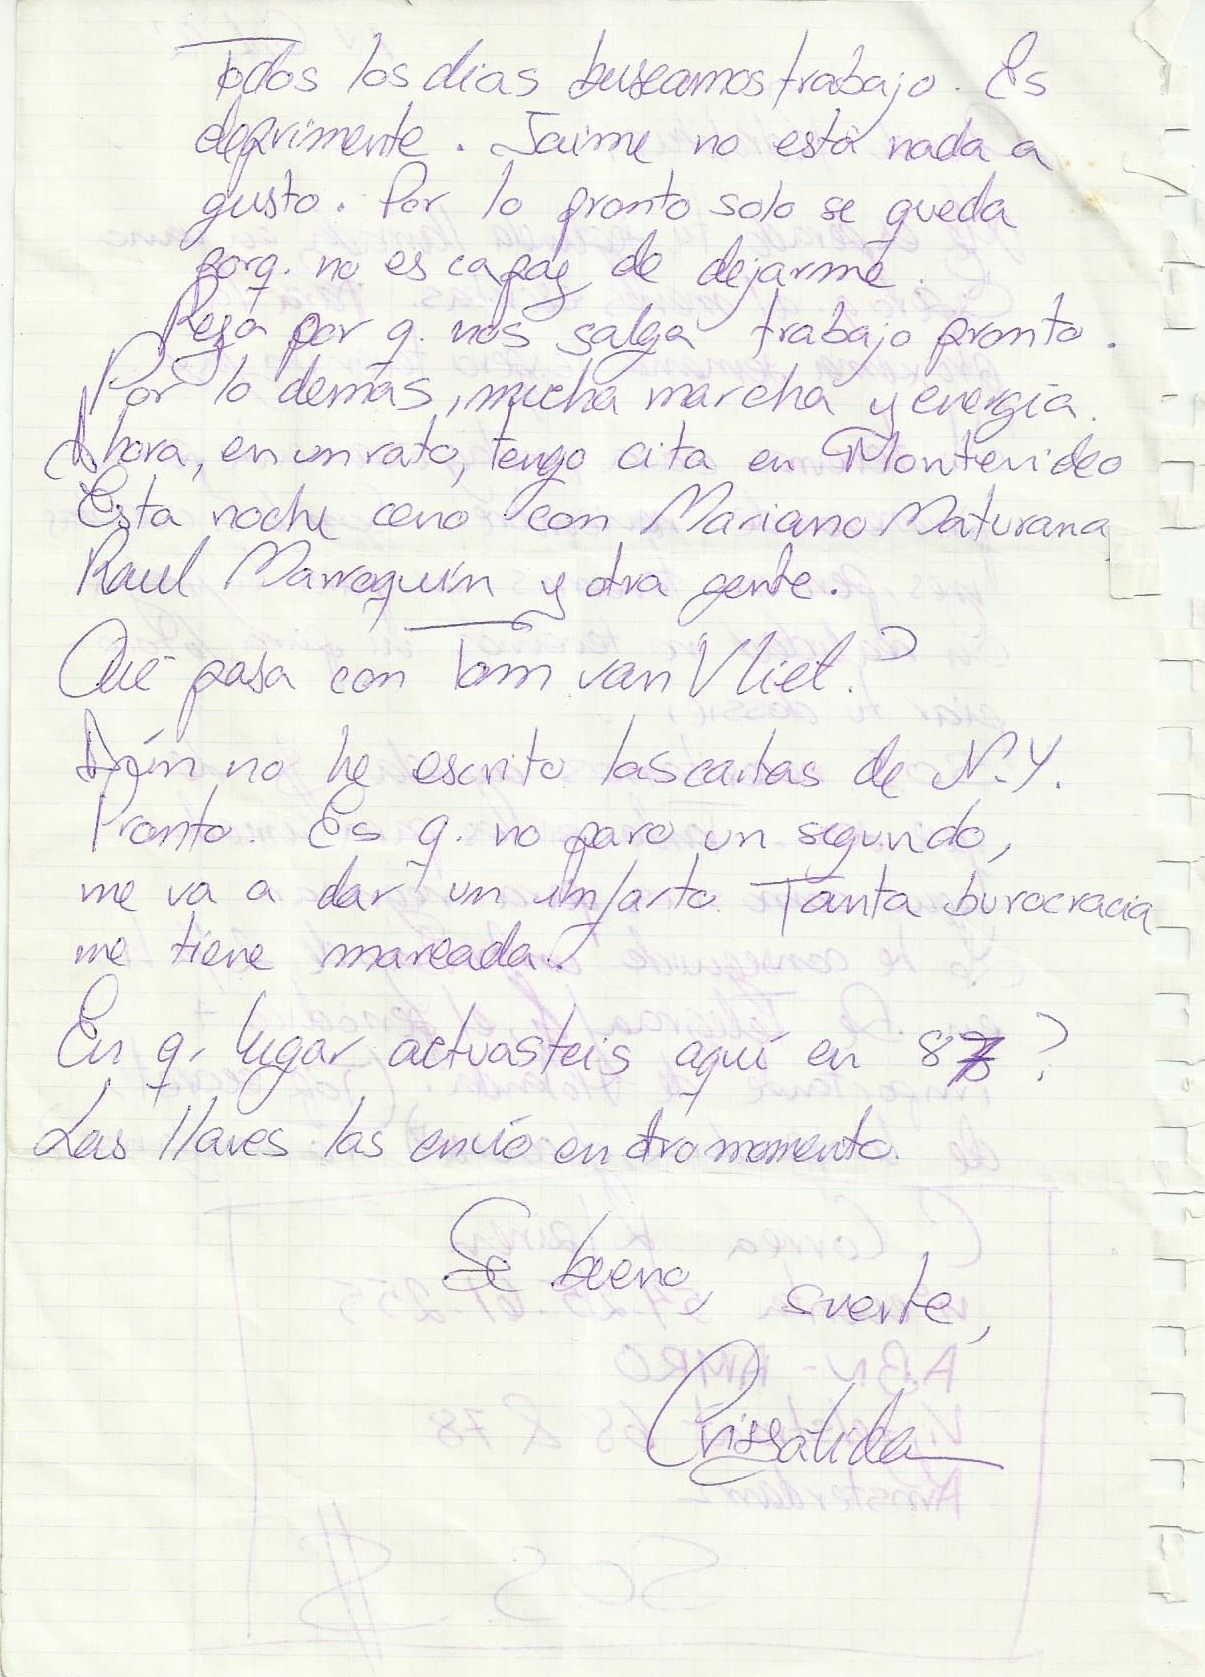 Todos los dias buscamos trabajo. Es
deprimente. Jaime no está nada a
gusto. Por lo pronto solo se queda
porq. no es capaz de dejarme.
Reza por q. nos salga trabajo pronto.
Por lo demás, mucha marcha y energía.
Ahora, en un rato, tengo cita en Montevideo
Esta noche ceno con Mariano Maturana
Raul Marroquín y otra gente.
Qué pasa con Tom van Vliet?
Aún no he escrito las cartas de N.Y.
Pronto. Es q. no paro un segundo,
me va a dar un infarto. Tanta burocracia
me tiene mareada.
En q. lugar actuasteis aquí en 87?
Las llaves las envío en otro momento.
Se bueno, suerte,
Crissálida